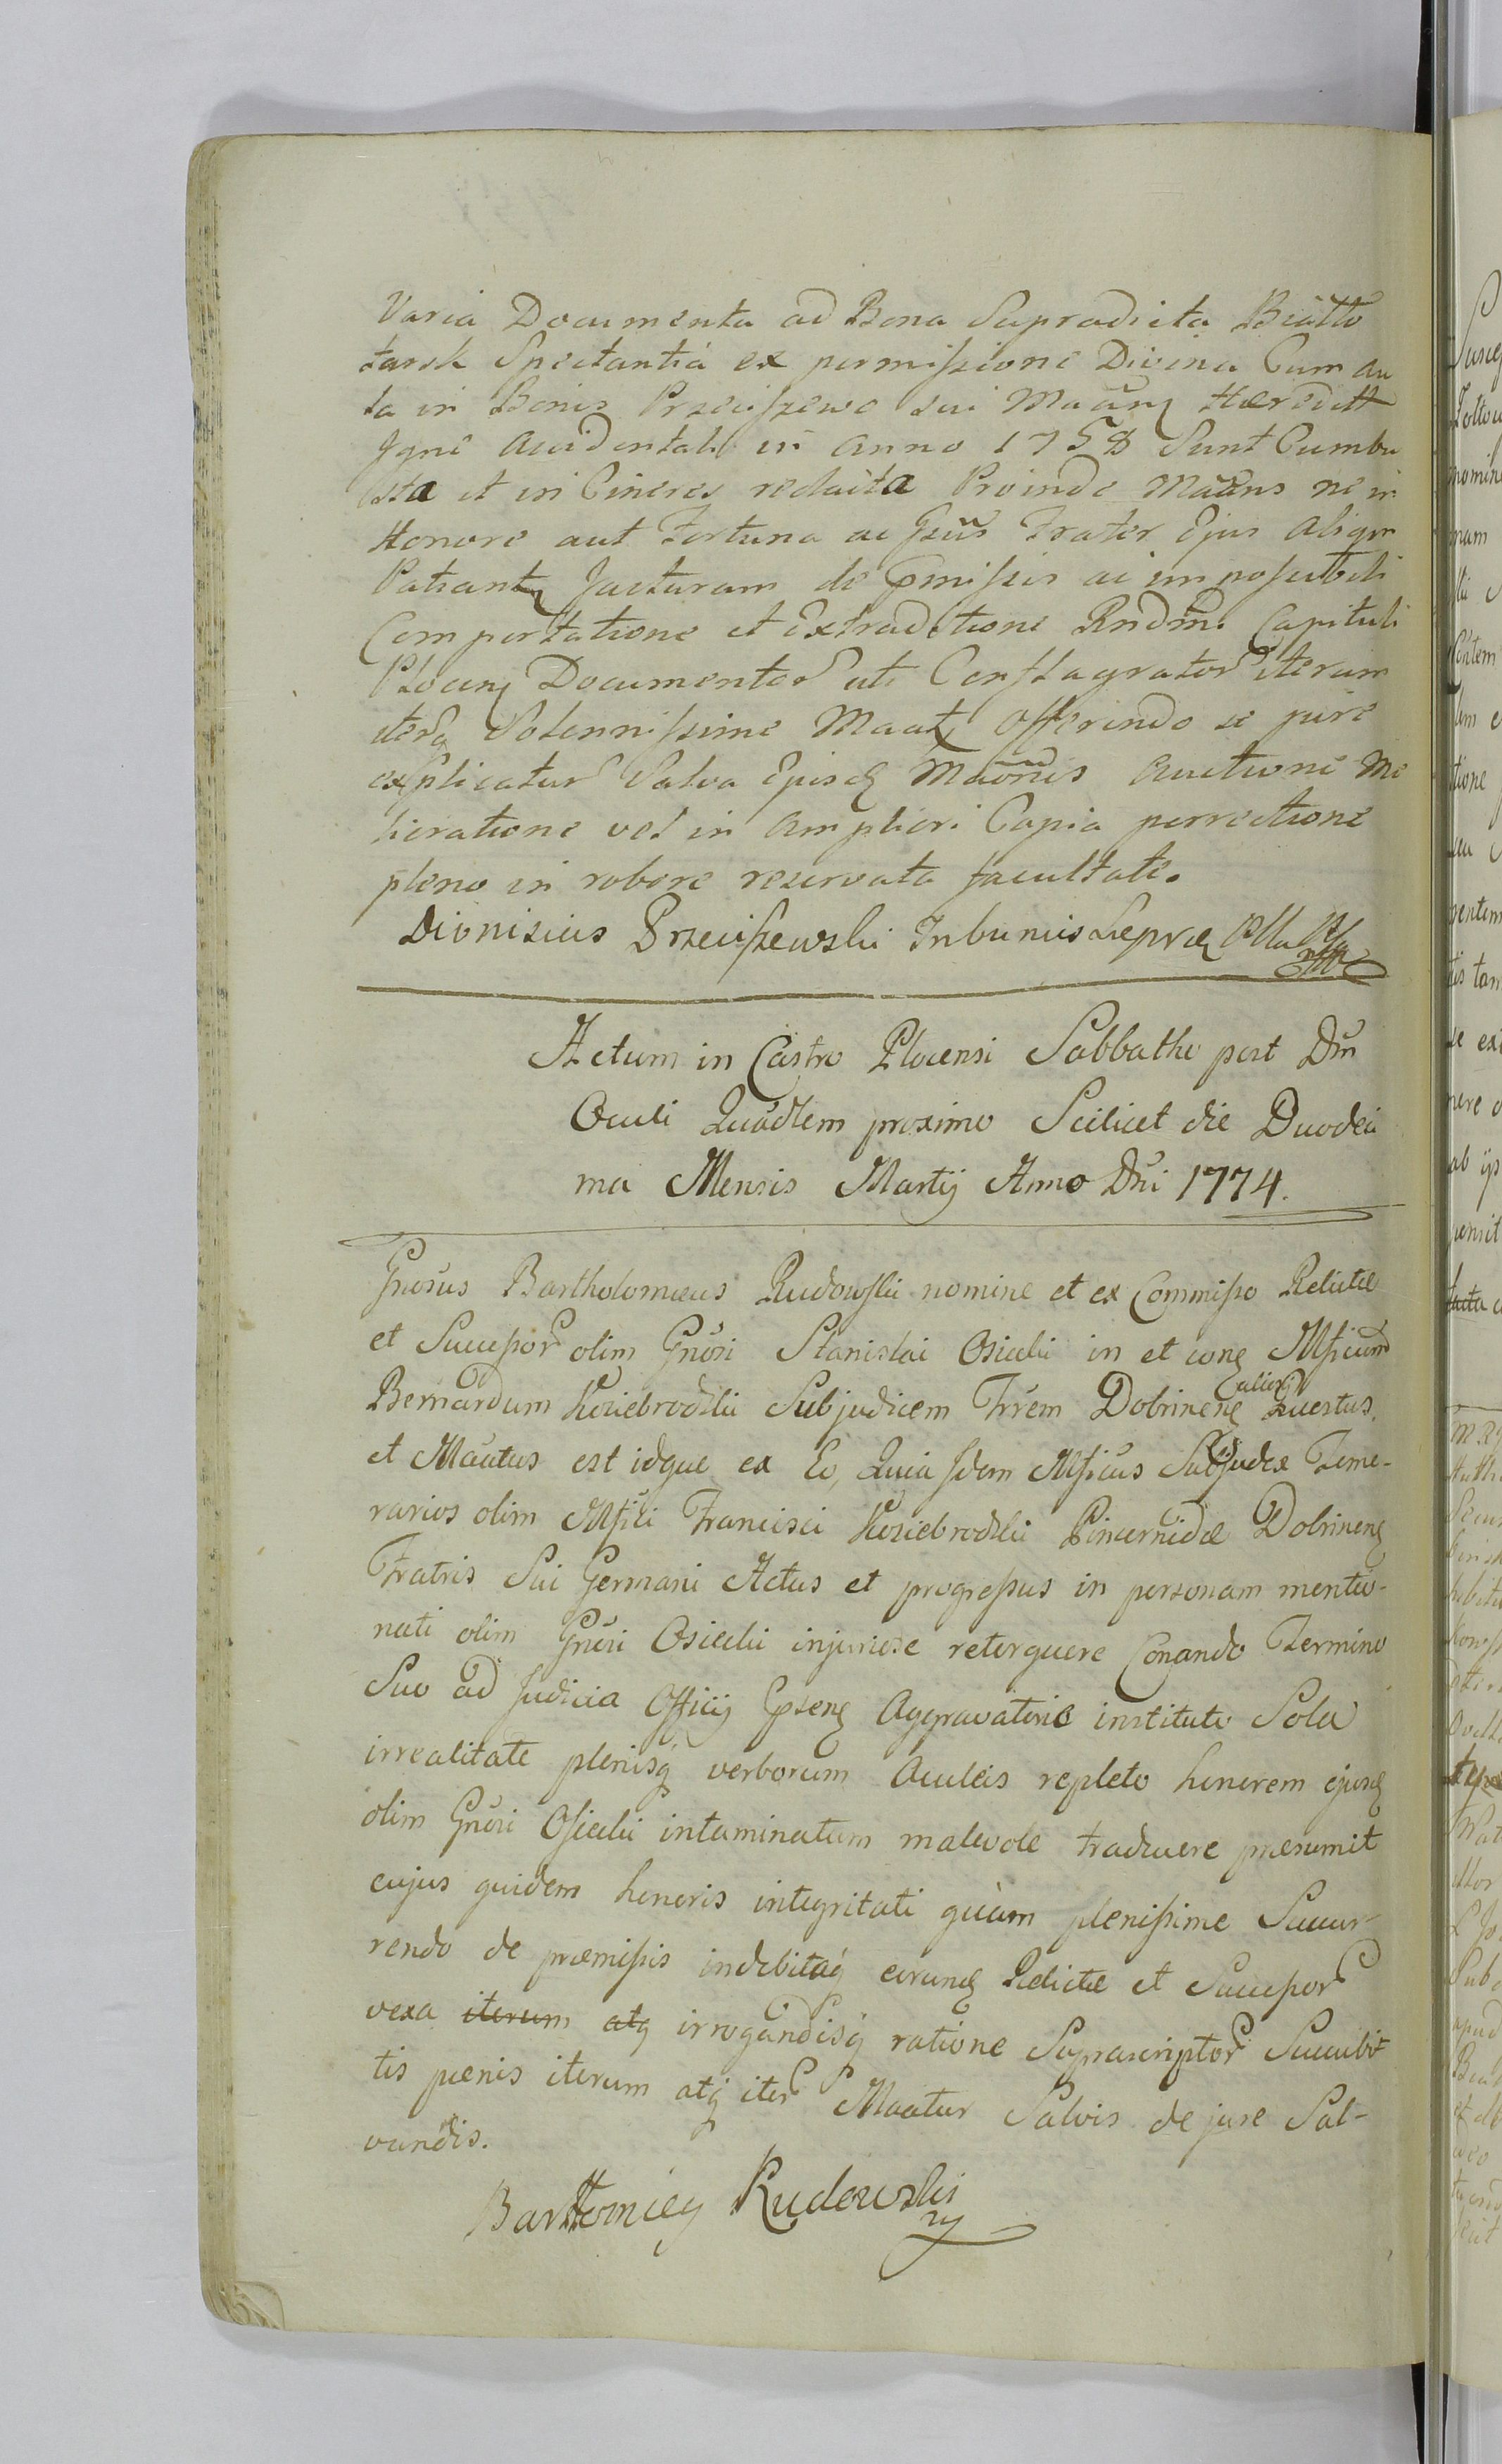 Varia Documenta ad Bona Supradicta Biatto
tarsk Spectantia ex permissione Divina Cum au
la in Bonis Przeciszewo sui Maan Hæreditt
Igne accidentali in Anno 1758 Sunt Cumbu
sta et in Cineres redacta Proinde Maans ne in
Honore aut Fortuna ac Gsus Frater Ejus aliqm
Patiant Jacturam de Pmissis ac impossibili
Comportatione et Extraditione Rndm Capituli
Plocen Documentor uti Conflagrator iterum
iterq Solennissime Maat offerendo se jure
explicatur Salva Ejusd Maonis Auctione Me
lioratione vel in Ampliori Copia porrectione
pleno in robore reservata facultate.
Dionisius Przeciszewski Tribunus
Actum in Castro Plocensi Sabbatho post Dm
Oculi Quadlem proximo Scilicet die Duodeci
ma Mensis Martij Anno Dni 1774.
Gnosus Bartholomæus Rudowski nomine et ex Commisso Relictæ
et Successor olim Gnosi Stanislai Osiecki in et cong Mficum
Bernardum Koziebrodzki Subjudicem Trrem Dobrinens Questus
et Maatus est idque ex Eo, Quia Idem Mficus Subjudex Teme-
rarios olim Mfici Francisci Koziebrodzki Pincernidæ Dobrinens
Fratris Sui Germani Actus et progressus in personam mentio-
nati olim Gnosi Osiecki injuriose retorquere Conando Termino
Suo ad Judicia Officij Pseng Aggravatorie instituto Sola
irrealitate plenisq verborum Aculeis repleto honorem ejusd
olim Gnosi Osiecki intaminatum malevole traducere præsumit
cujus quidem honoris integritati quam plenissime Succur-
rendo de præmissis indebitaq eorund Relictæ et Successor
vexa iterum atq irrogandisq ratione Suprascriptor Succubit
tis pœnis iterum atq iter Maatur Salvis de jure Sal-
vandis.
Bartłomiey Rudowski